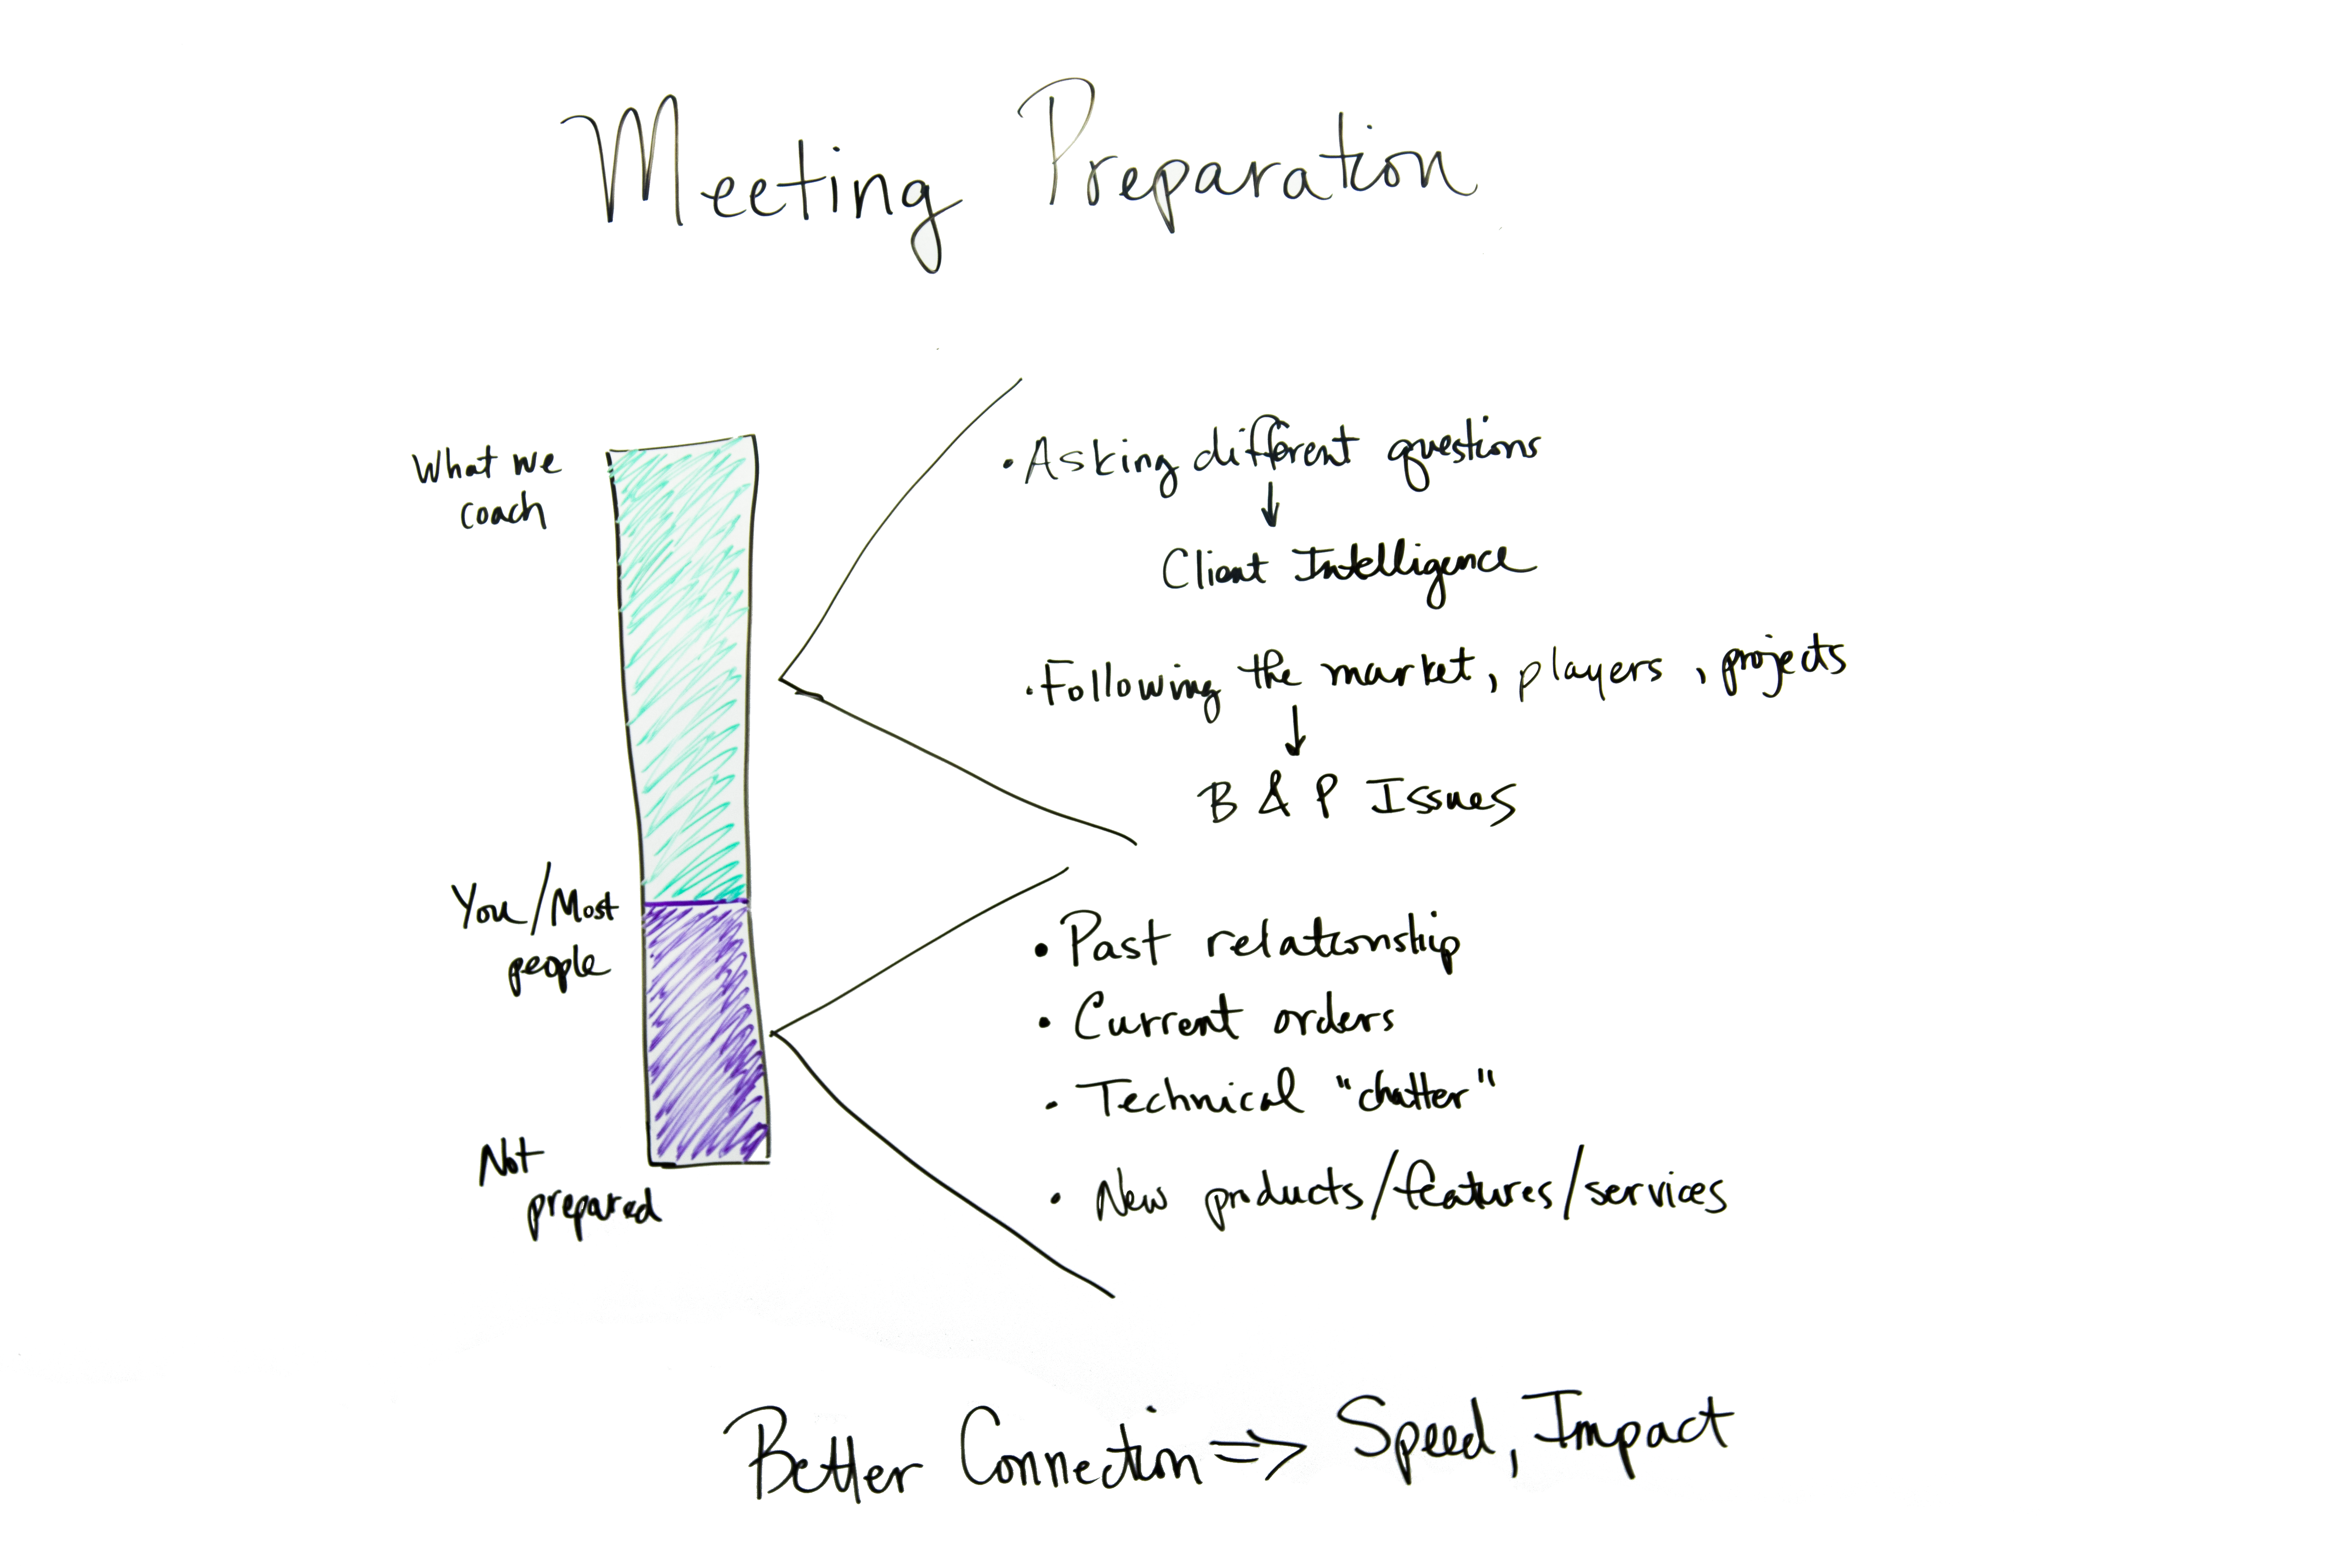 Meeting Preparation
What we
coach
• Asking different questions
↓
Client Intelligence
• Following the market, players, projects
↓
B & P Issues
You/Most
people
• Past relationship
• Current orders
• Technical "chatter"
• New products/features/services
Not
prepared
Better Connection ⇒ Speed, Impact